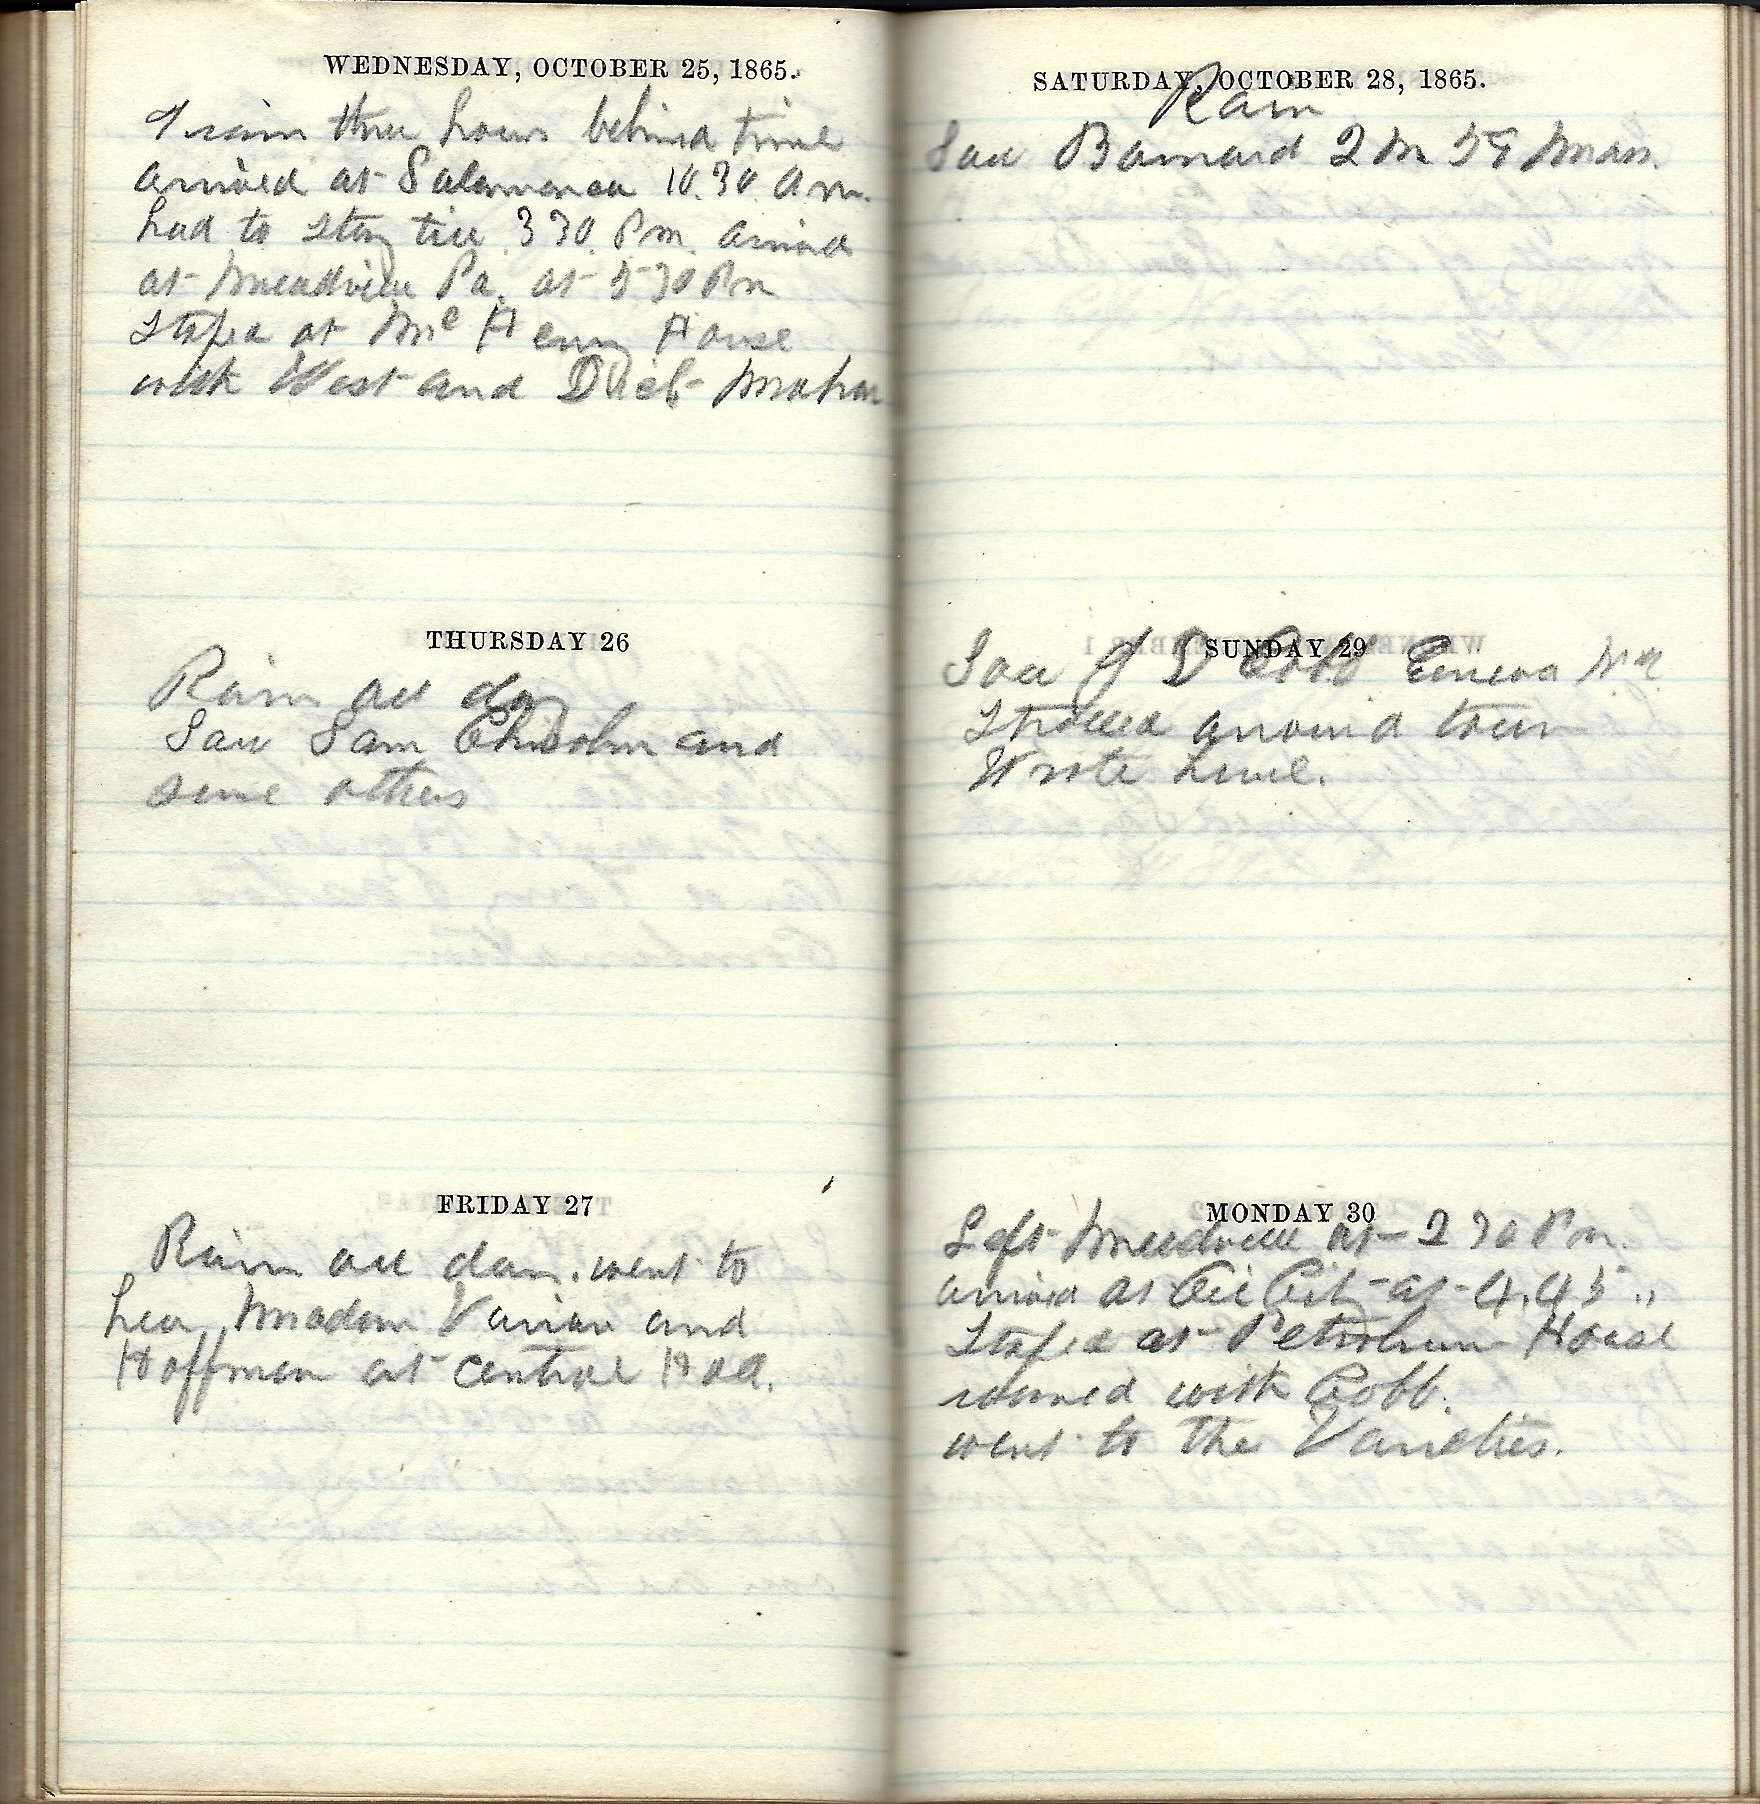 WEDNESDAY, OCTOBER 25, 1865.
Train three hours behind time
arrived at Salamanca 10.30 A m.
had to stay till 3 30 P m. arrived
at Meadville Pa. at 5 30 P m
Stoped at Mc Henry House
with West and Dick
THURSDAY 26
Rain all day
Saw Sam Chisolm and
some others
FRIDAY 27
Rain all day. went to
hear Madam Varian and
Hoffman at Central Hall.
SATURDAY, OCTOBER 28, 1865.
Rain
Saw Barnard 2 M 59 Mass.
SUNDAY 29
Saw J D Cobb Geneva
Strolled around town
Wrote Line.
MONDAY 30
Left Meadville at 2 30 P m.
arrived at Oil City at 4.45 "
Stoped at Petroleum House
roomed with Cobb.
went to the Varieties.